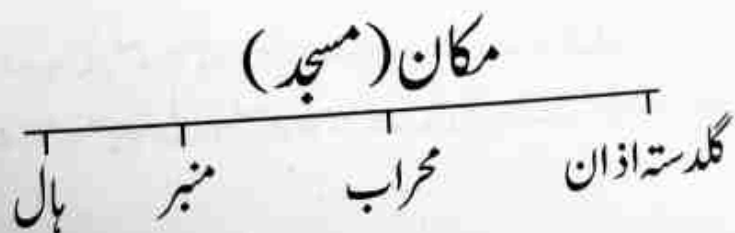 مکان (مسجد)
گلدستہ اذان محراب منبر ہال